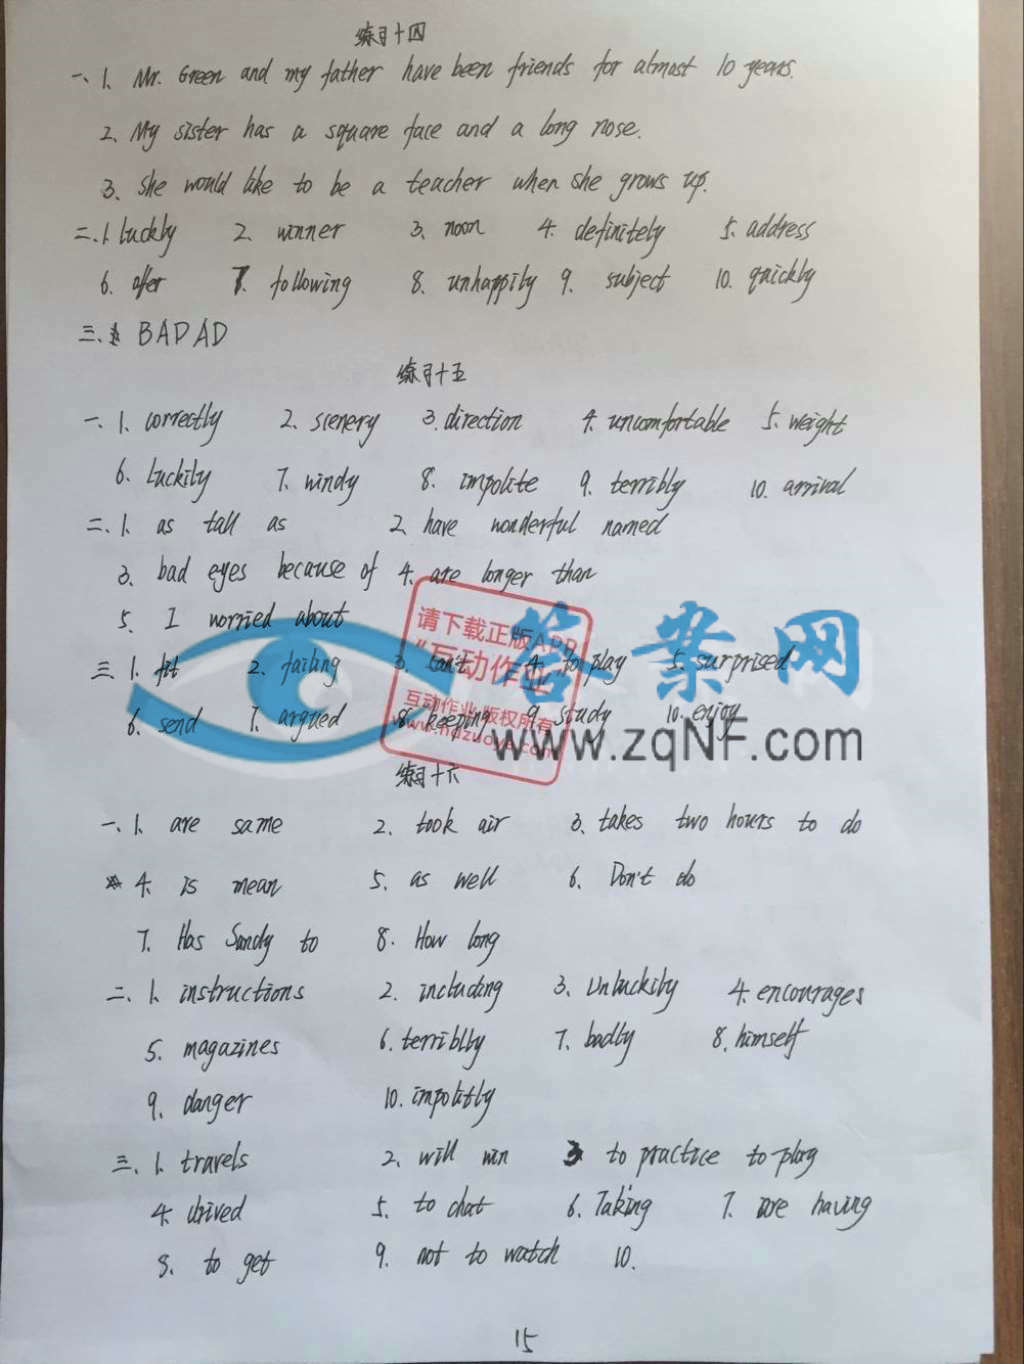 练习十四
一、1. Mr. Green and my father have been friends for almost 10 years.
2. My sister has a square face and a long nose.
3. She would like to be a teacher when she grows up.
二、1. luckly 2. winner 3. noon 4. definitely 5. address
6. offer 7. following 8. unhappily 9. subject 10. quickly
三、BADAD
练习十五
一、1. correctly 2. scenery 3. direction 4. uncomfortable 5. weight
6. Luckily 7. windy 8. impolite 9. terribly 10. arrival
二、1. as tall as 2. have wonderful named
3. bad eyes because of 4. are longer than
5. I worried about
三 1. fit 2. failing 3. can't 4. to play 5. surprised
6. send 7. argued 8. keeping 9. study 10. enjoy
请下载正版APP
"互动作业"
互动作业 版权所有
www.hdzuoye.com
答案网
www.zqNF.com
练习十六
一、1. are same 2. took air 3. takes two hours to do
4. is mean 5. as well 6. Don't do
7. Has Sandy to 8. How long
二、1. instructions 2. including 3. Unluckily 4. encourages
5. magazines 6. terriblly 7. badly 8. himself
9. danger 10. impolitly
三、1. travels 2. will win 3 to practice to play
4. drived 5. to chat 6. Taking 7. are having
8. to get 9. not to watch 10.
15